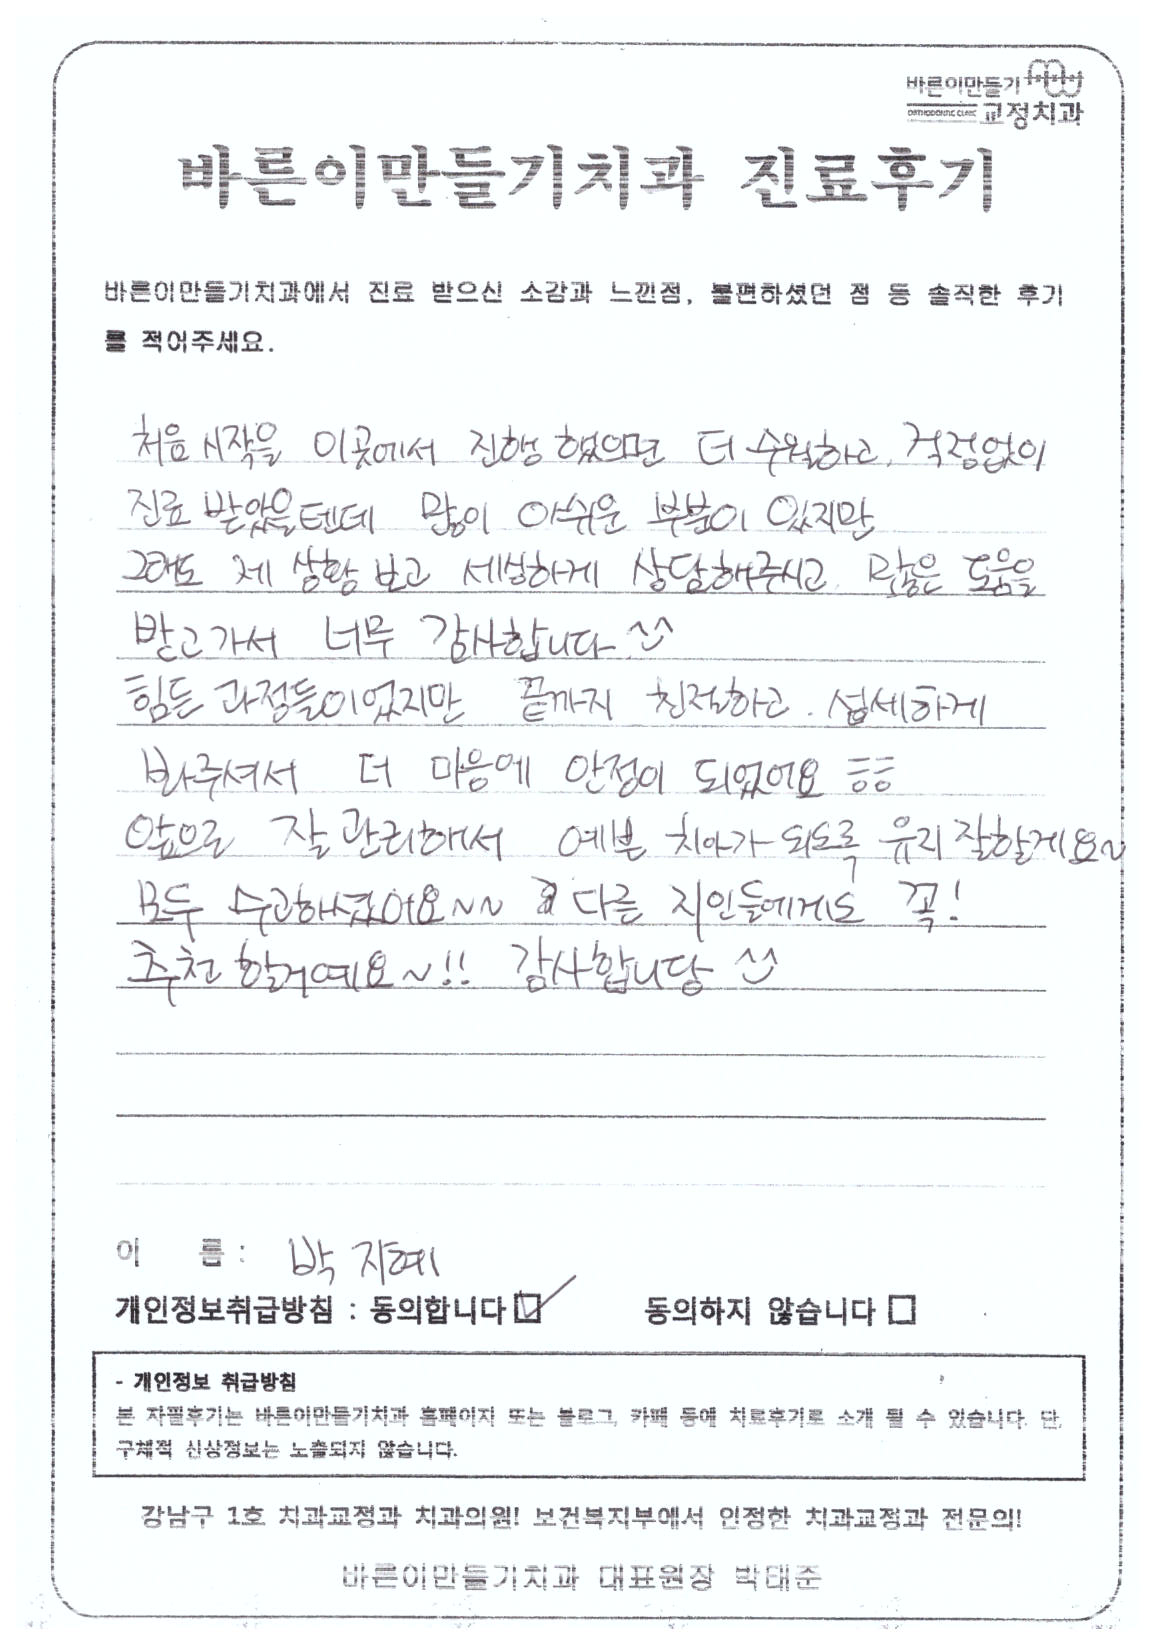 바른이만들기
ORTHODONTIC CLINIC 교정치과
바른이만들기치과 진료후기
바른이만들기치과에서 진료 받으신 소감과 느낀점, 불편하셨던 점 등 솔직한 후기
를 적어주세요.
처음 시작을 이곳에서 진행 했으면 더 수월하고, 걱정없이
진료 받았을텐데 많이 아쉬운 부분이 있지만
그래도 제 상황 보고 세심하게 상담해주시고, 많은 도움을
받고가서 너무 감사합니다 ^^
힘든 과정들이었지만 끝까지 친절하고, 섬세하게
봐주셔서 더 마음에 안정이 되었어요 ㅎㅎ
앞으로 잘 관리해서 예쁜 치아가 되도록 유지 잘할게요~
모두 수고하셨어요~~ 다른 지인들에게도 꼭!
추천 할거예요~!! 감사합니당 ^^
이 름 : 박지혜
개인정보취급방침 : 동의합니다 ☑ 동의하지 않습니다 □
- 개인정보 취급방침
본 자필후기는 바른이만들기치과 홈페이지 또는 블로그, 카페 등에 치료후기로 소개 될 수 있습니다. 단,
구체적 신상정보는 노출되지 않습니다.
강남구 1호 치과교정과 치과의원! 보건복지부에서 인정한 치과교정과 전문의!
바른이만들기치과 대표원장 박태준